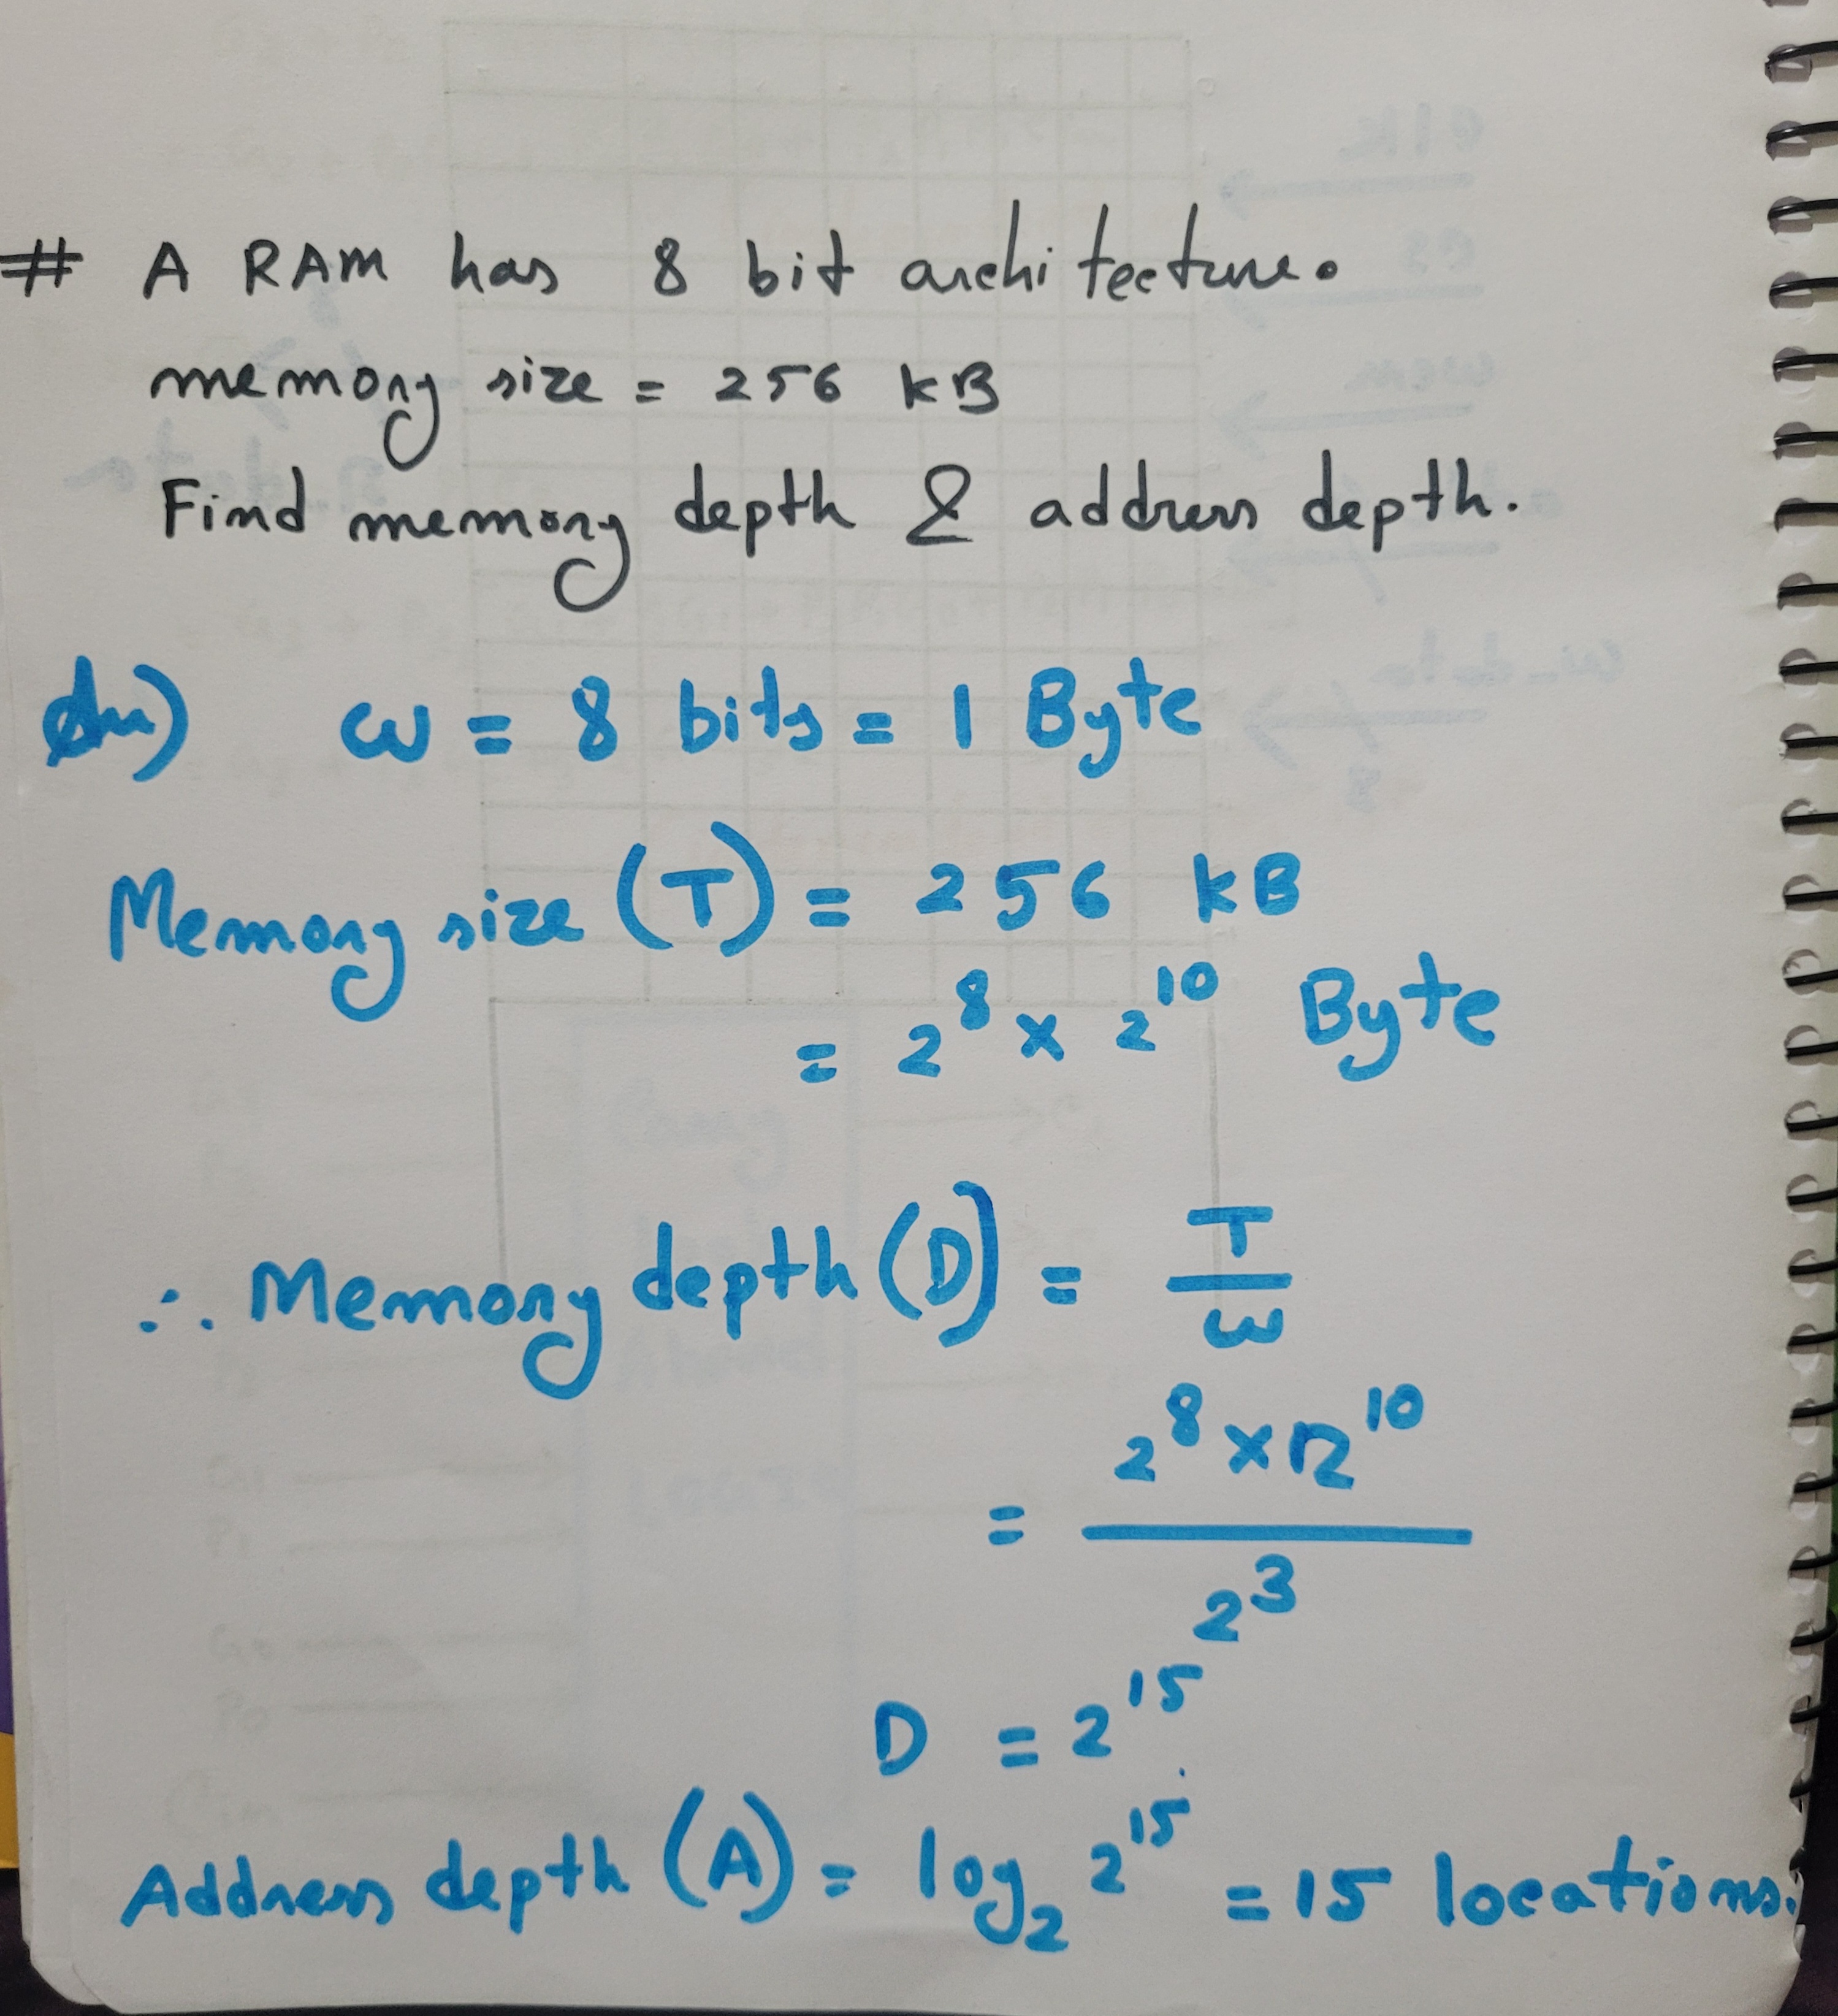 # A RAM has 8 bit architecture.
memory size = 256 kB
Find memory depth & address depth.
Ans) W = 8 bits = 1 Byte
Memory size (T) = 256 kB
= 2^8 x 2^10 Byte
∴ Memory depth (D) = T/W
= 2^8 x 2^10 / 2^3
D = 2^15
Address depth (A) = log₂ 2^15 = 15 locations.